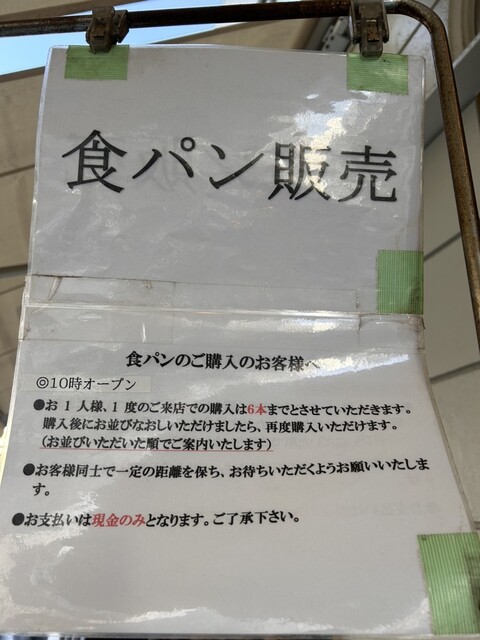 食パン販売
食パンのご購入のお客様へ
◎10時オープン
●お1人様、1度のご来店での購入は6本までとさせていただきます。
購入後にお並びなおしいただけましたら、再度購入いただけます。
(お並びいただいた順でご案内いたします)
●お客様同士で一定の距離を保ち、お待ちいただくようお願いいたしま
す。
●お支払いは現金のみとなります。ご了承下さい。